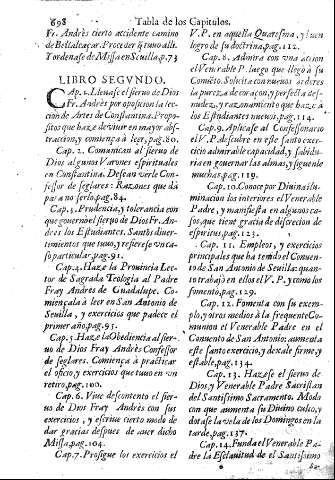 698 Tabla de los Capitulos.
Fr. Andrès cierto accidente camino
de Belalcaçar. Proceder q̃ tuvo allí.
Y ordenase de Missa en Sevilla, p.73
LIBRO SEGVNDO.
CAp. 1. Llevase el siervo de Dios
Fr. Andrès por oposicion la lec-
ciòn de Artes de Constantina. Propo-
sitos que haze de vivir en mayor abs-
traccion, y comiença à leer, pag.80.
Cap. 2. Comunican al siervo de
Dios algunos Varones espirituales
en Constantina. Desean verle Con-
fessor de seglares: Razones que dà
para no serlo, pag.84.
Cap.3. Prudencia, y tolerancia con
que governò el siervo de Dios Fr. An-
drès los Estudiantes. Santos diver-
timientos que tuvo, y refierese un ca-
so particular, pag.91.
Cap.4. Hazele la Provincia Lec-
tor de Sagrada Teologia al Padre
Fray Andrès de Guadalupe. Co-
miençala à leer en San Antonio de
Sevilla, y exercicios que padece el
primer año, pag.95.
Cap.5. Hazele la Obediencia al sier-
vo de Dios Fray Andrès Confessor
de seglares. Comiença à practicar
el oficio, y exercicios que tuvo en un
retiro, pag.100.
Cap. 6. Vive descontento el sier-
vo de Dios Fray Andrès con sus
exercicios, y escrive cierto modo de
dar gracias despues de aver dicho
Missa, pag.104.
Cap.7. Prosigue los exercicios el
V.P. en aquella Quaresma, y buen
logro de su doctrina, pag.112.
Cap. 8. Admira con una accion
el Venerable P. luego que llegò à su
Convẽto. Solicita con nuevos ardores
la pureza de coraçon, y perfecta des-
nudez, y razonamiento que haze à
los Estudiantes nuevos, pag.114.
Cap.9. Aplicase al Confessonario
el V.P. descubre en este santo exer-
cicio admirable capacidad, y sabidu-
ria en governar las almas, y siguenle
muchas, pag.119.
Cap.10. Conoce por Divina ilu-
minacion los interiores el Venerable
Padre, y manifiesta en algunos ca-
sos que tiene gracia de discrecion de
espiritus, pag.123.
Cap. 11. Empleos, y exercicios
principales que ha tenido el Conven-
to de San Antonio de Sevilla: quan-
to trabajò en ellos el V.P. y como los
fomentò, pag.129.
Cap. 12. Fomenta con su exem-
plo, y otros medios à la frequente Co-
munion el Venerable Padre en el
Convento de San Antonio: aumenta
este santo exercicio, y dexale firme, y
estable, pag.134.
Cap. 13. Hazese el siervo de
Dios, y Venerable Padre Sacristan
del Santissimo Sacramento. Modo
con que aumenta su Divino culto, y
dotase la vela de los Domingos en la
tarde, pag.137.
Cap.14. Funda el Venerable Pa-
dre la Esclavitud de el Santissimo
Sa-